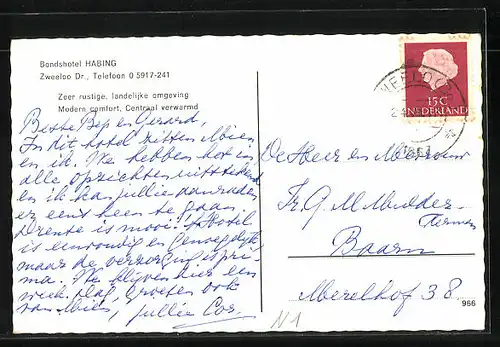 Bondshotel HABING
Zweeloo Dr., Telefoon 0 5917-241
Zeer rustige, landelijke omgeving
Modern comfort, Centraal verwarmd
Beste Bep en Gerard,
In dit hotel zitten Mien
en ik. We hebben het in
alle opzichten uitstekend
en ik kan jullie aanraden
er eens heen te gaan
Drente is mooi! Hotel
is eenvoudig en genoegelijk,
maar de verzorging is pri-
ma. We blijven hier een
week. Dag, groeten ook
van Mien, jullie Cor.
15 C
NEDERLAND
De Heer en Mevrouw
Fr. G. M. Mulder-
Baarn
Merelhof 38
966
N1